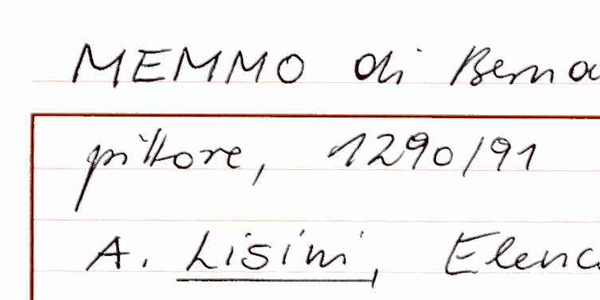 MEMMO di Berna
pittore, 1290/91
A. Lisini, Elenc